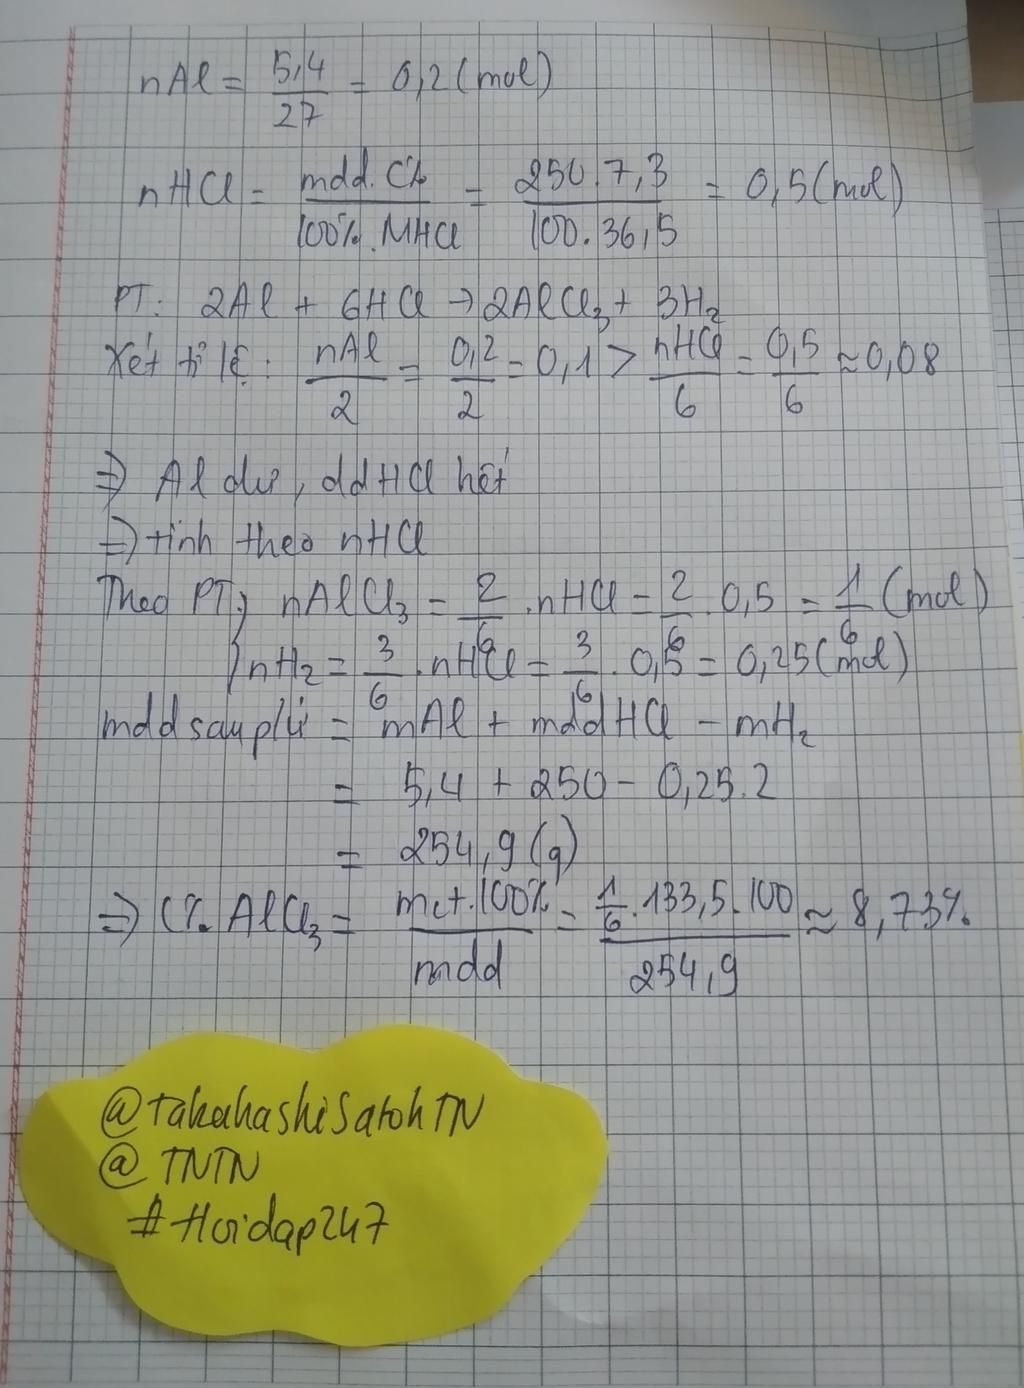 nAl = 5,4/27 = 0,2 (mol)
nHCl = mdd.C%/100%.MHCl = 250.7,3/100.36,5 = 0,5 (mol)
PT: 2Al + 6HCl → 2AlCl₃ + 3H₂
Xét tỉ lệ: nAl/2 = 0,2/2 = 0,1 > nHCl/6 = 0,5/6 ≈ 0,08
⇒ Al dư, ddHCl hết
⇒ tính theo nHCl
Theo PT} nAlCl₃ = 2/6 . nHCl = 2/6 . 0,5 = 1/6 (mol)
nH₂ = 3/6 . nHCl = 3/6 . 0,5 = 0,25 (mol)
mdd sau pứ = mAl + mddHCl - mH₂
= 5,4 + 250 - 0,25.2
= 254,9 (g)
⇒ C% AlCl₃ = mct.100%/mdd = 1/6 . 133,5.100/254,9 ≈ 8,73%
@TakahashiSatohTN
@ TNTN
#Hoidap247